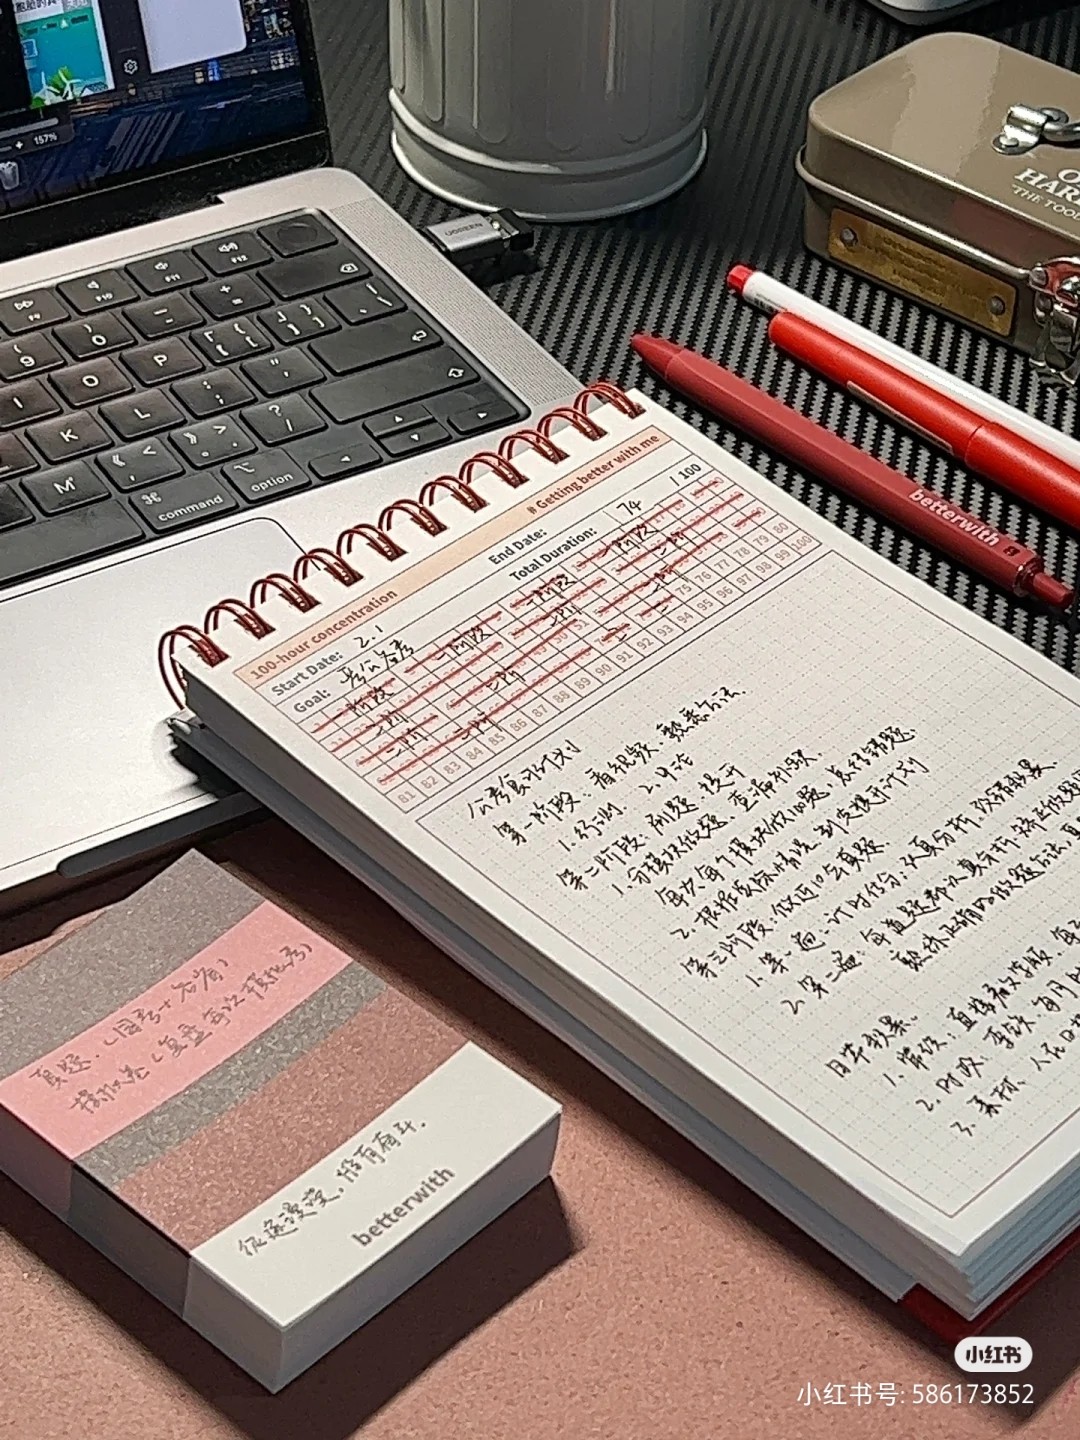 157%
F9
F10
F11
F12
O
P
I
L
K
M
command
option
UGREEN
THE TOOL
betterwith
# Getting better with me
100-hour concentration
Start Date: 2.1
End Date:
Goal: 考公备考
Total Duration: 74 / 100
75 76 77 78 79 80
81 82 83 84 85 86 87 88 89 90 91 92 93 94 95 96 97 98 99 100
公考复习计划
第一阶段：看视频、熟悉方法。
1.行测 2.申论
第二阶段：刷题、提升
1.分模块做题，查漏补缺.
每次每个模块做10题，总结错题.
2.根据实际情况制定提升计划
第三阶段：做近10套真题.
1.第一遍：计时估分，认真分析
2.第二遍：每道题都认真分析，矫正做题
熟练正确的做题方法，
日常积累.
1.常识：直接看
2.时政：
3.素材：人民日
真题.（国考+省考）
模拟卷（复盘每次模拟考）
征途漫漫，惟有奋斗.
betterwith
小红书
小红书号: 586173852